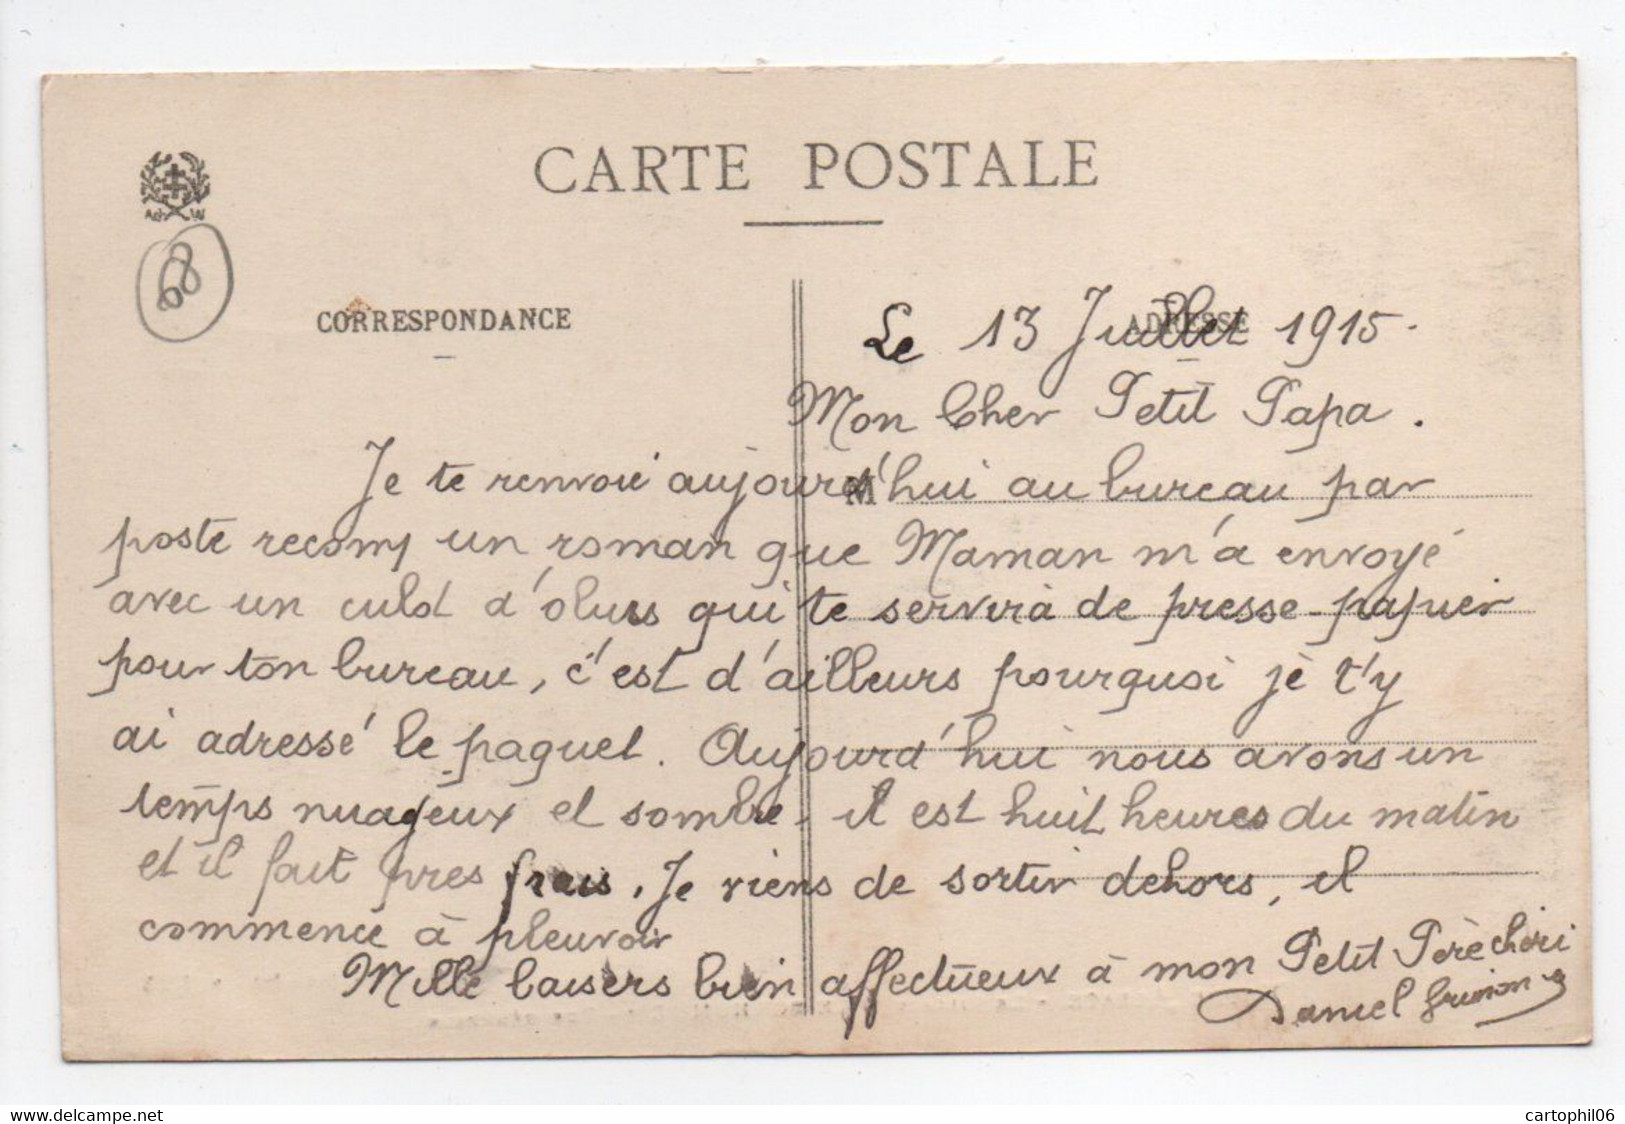 CARTE POSTALE
68
CORRESPONDANCE
ADRESSE
Le 13 Juillet 1915.
Mon Cher Petit Papa.
M
Je te renvoie aujourd'hui au bureau par
poste recom un roman que Maman m'a envoyé
avec un culot d'obus qui te servira de presse-papier
pour ton bureau, c'est d'ailleurs pourquoi je t'y
ai adressé le paquet. Aujourd'hui nous avons un
temps nuageux et sombre, il est huit heures du matin
et il fait pres frais. Je viens de sortir dehors, il
commence à pleuvoir
Mille baisers bien affectueux à mon Petit Père chéri
Daniel
www.delcampe.net
cartophil06